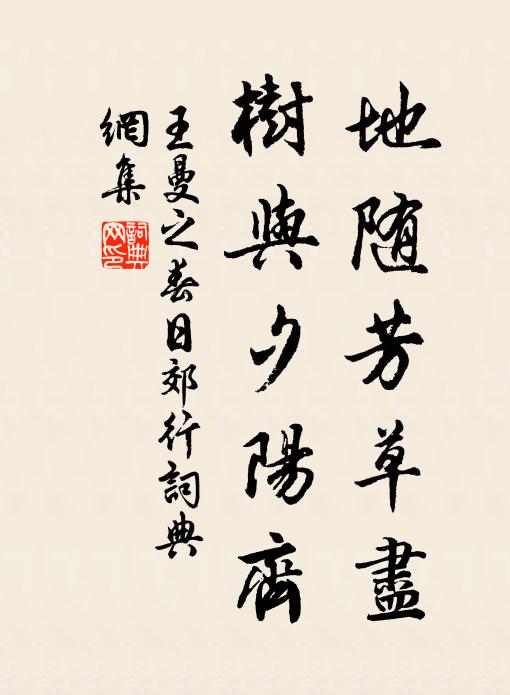 地随芳草盡
樹與夕陽齊
王曼之春日郊行詞典
網集
詞典
网印